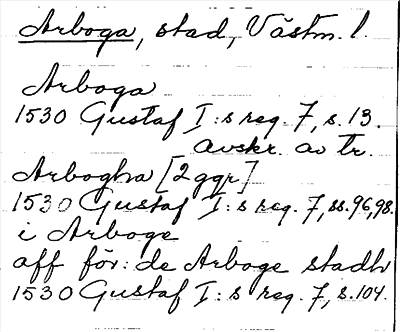 Arboga, stad, Västm. l.
Arboga
1530 Gustaf I:s reg. 7, s. 13.
avskr. av tr.
Arbogha [2 ggr]
1530 Gustaf I:s reg. 7, ss. 96, 98.
i Arboge
aff för: de Arboge stadh
1530 Gustaf I:s reg. 7, s. 104.